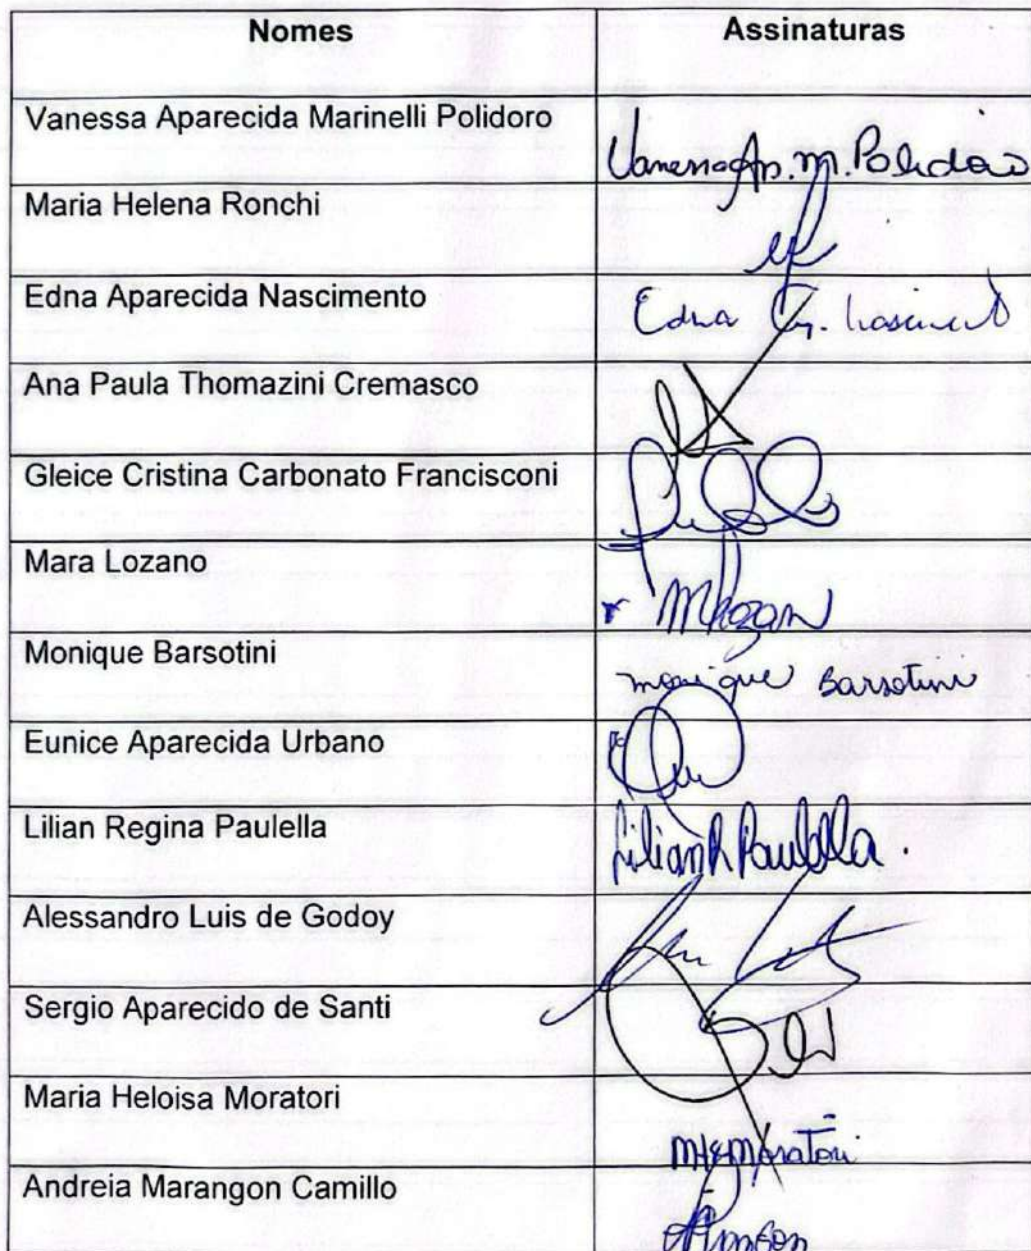 Nomes Assinaturas
Vanessa Aparecida Marinelli Polidoro Vanessa Ap. M. Polidoro
Maria Helena Ronchi
Edna Aparecida Nascimento Edna Ap. Nascimento
Ana Paula Thomazini Cremasco
Gleice Cristina Carbonato Francisconi
Mara Lozano
Monique Barsotini Monique Barsotini
Eunice Aparecida Urbano
Lilian Regina Paulella Lilian R Paulella.
Alessandro Luis de Godoy
Sergio Aparecido de Santi
Maria Heloisa Moratori MHMoratori
Andreia Marangon Camillo